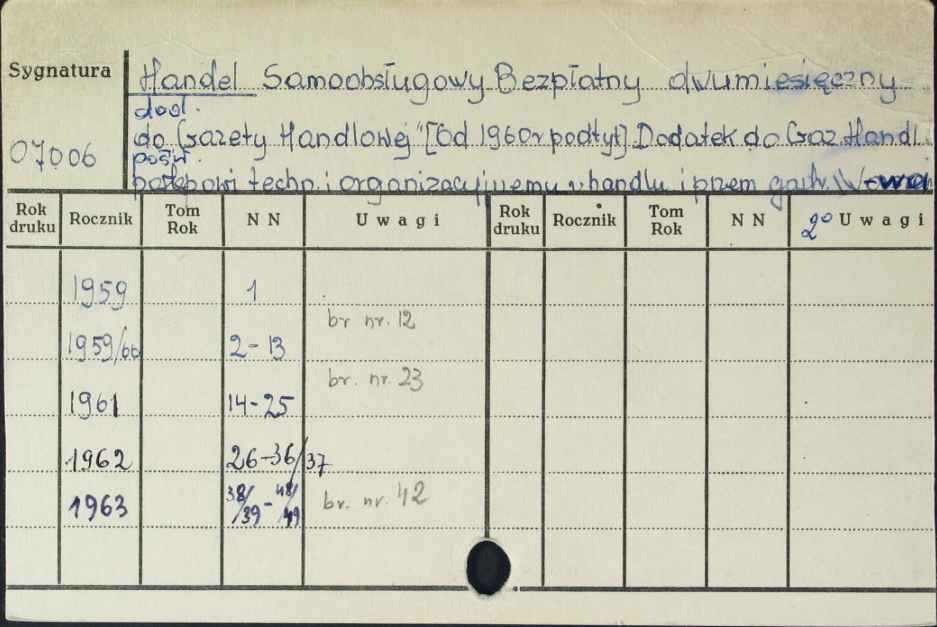 Sygnatura
Handel Samoobsługowy Bezpłatny dwumiesięczny
dod.
do "Gazety Handlowej" [Od 1960r podtyt] Dodatek do Gaz. Handl.
07006
pośw.
postępowi techn. i organizacyjnemu w handlu i przem gastr. W-wa
Rok druku Rocznik Tom Rok NN Uwagi Rok druku Rocznik Tom Rok NN 2° Uwagi
1959 1
br nr. 12
1959/60 2-13
br. nr. 23
1961 14-25
1962 26-36/37
1963 38/39-48/49 br. nr. 42